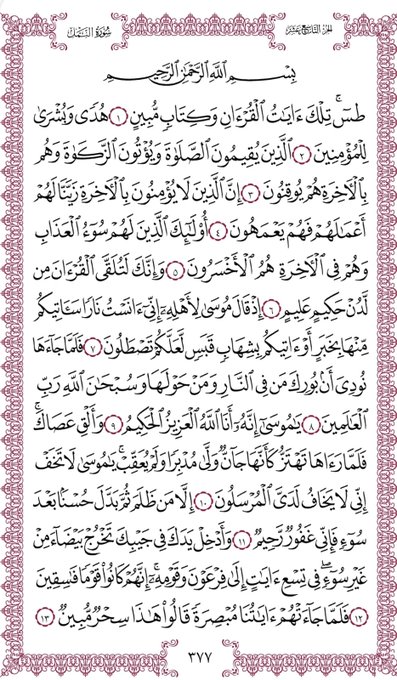 الجزء التاسع عشر
سورة النمل
بِسْمِ ٱللَّهِ ٱلرَّحْمَٰنِ ٱلرَّحِيمِ
طسٓ ۚ تِلْكَ ءَايَٰتُ ٱلْقُرْءَانِ وَكِتَابٍ مُّبِينٍ ١ هُدًى وَبُشْرَىٰ
لِلْمُؤْمِنِينَ ٢ ٱلَّذِينَ يُقِيمُونَ ٱلصَّلَوٰةَ وَيُؤْتُونَ ٱلزَّكَوٰةَ وَهُم
بِٱلْءَاخِرَةِ هُمْ يُوقِنُونَ ٣ إِنَّ ٱلَّذِينَ لَا يُؤْمِنُونَ بِٱلْءَاخِرَةِ زَيَّنَّا لَهُمْ
أَعْمَٰلَهُمْ فَهُمْ يَعْمَهُونَ ٤ أُو۟لَٰٓئِكَ ٱلَّذِينَ لَهُمْ سُوٓءُ ٱلْعَذَابِ
وَهُمْ فِى ٱلْءَاخِرَةِ هُمُ ٱلْأَخْسَرُونَ ٥ وَإِنَّكَ لَتُلَقَّى ٱلْقُرْءَانَ مِن
لَّدُنْ حَكِيمٍ عَلِيمٍ ٦ إِذْ قَالَ مُوسَىٰ لِأَهْلِهِۦٓ إِنِّىٓ ءَانَسْتُ نَارًا سَـَٔاتِيكُم
مِّنْهَا بِخَبَرٍ أَوْ ءَاتِيكُم بِشِهَابٍ قَبَسٍ لَّعَلَّكُمْ تَصْطَلُونَ ٧ فَلَمَّا جَآءَهَا
نُودِىَ أَنۢ بُورِكَ مَن فِى ٱلنَّارِ وَمَنْ حَوْلَهَا وَسُبْحَٰنَ ٱللَّهِ رَبِّ
ٱلْعَٰلَمِينَ ٨ يَٰمُوسَىٰٓ إِنَّهُۥٓ أَنَا ٱللَّهُ ٱلْعَزِيزُ ٱلْحَكِيمُ ٩ وَأَلْقِ عَصَاكَ ۚ
فَلَمَّا رَءَاهَا تَهْتَزُّ كَأَنَّهَا جَآنٌّ وَلَّىٰ مُدْبِرًا وَلَمْ يُعَقِّبْ ۚ يَٰمُوسَىٰ لَا تَخَفْ
إِنِّى لَا يَخَافُ لَدَىَّ ٱلْمُرْسَلُونَ ١٠ إِلَّا مَن ظَلَمَ ثُمَّ بَدَّلَ حُسْنًۢا بَعْدَ
سُوٓءٍ فَإِنِّى غَفُورٌ رَّحِيمٌ ١١ وَأَدْخِلْ يَدَكَ فِى جَيْبِكَ تَخْرُجْ بَيْضَآءَ مِنْ
غَيْرِ سُوٓءٍ ۖ فِى تِسْعِ ءَايَٰتٍ إِلَىٰ فِرْعَوْنَ وَقَوْمِهِۦٓ ۚ إِنَّهُمْ كَانُوا۟ قَوْمًا فَٰسِقِينَ
١٢ فَلَمَّا جَآءَتْهُمْ ءَايَٰتُنَا مُبْصِرَةً قَالُوا۟ هَٰذَا سِحْرٌ مُّبِينٌ ١٣
٣٧٧